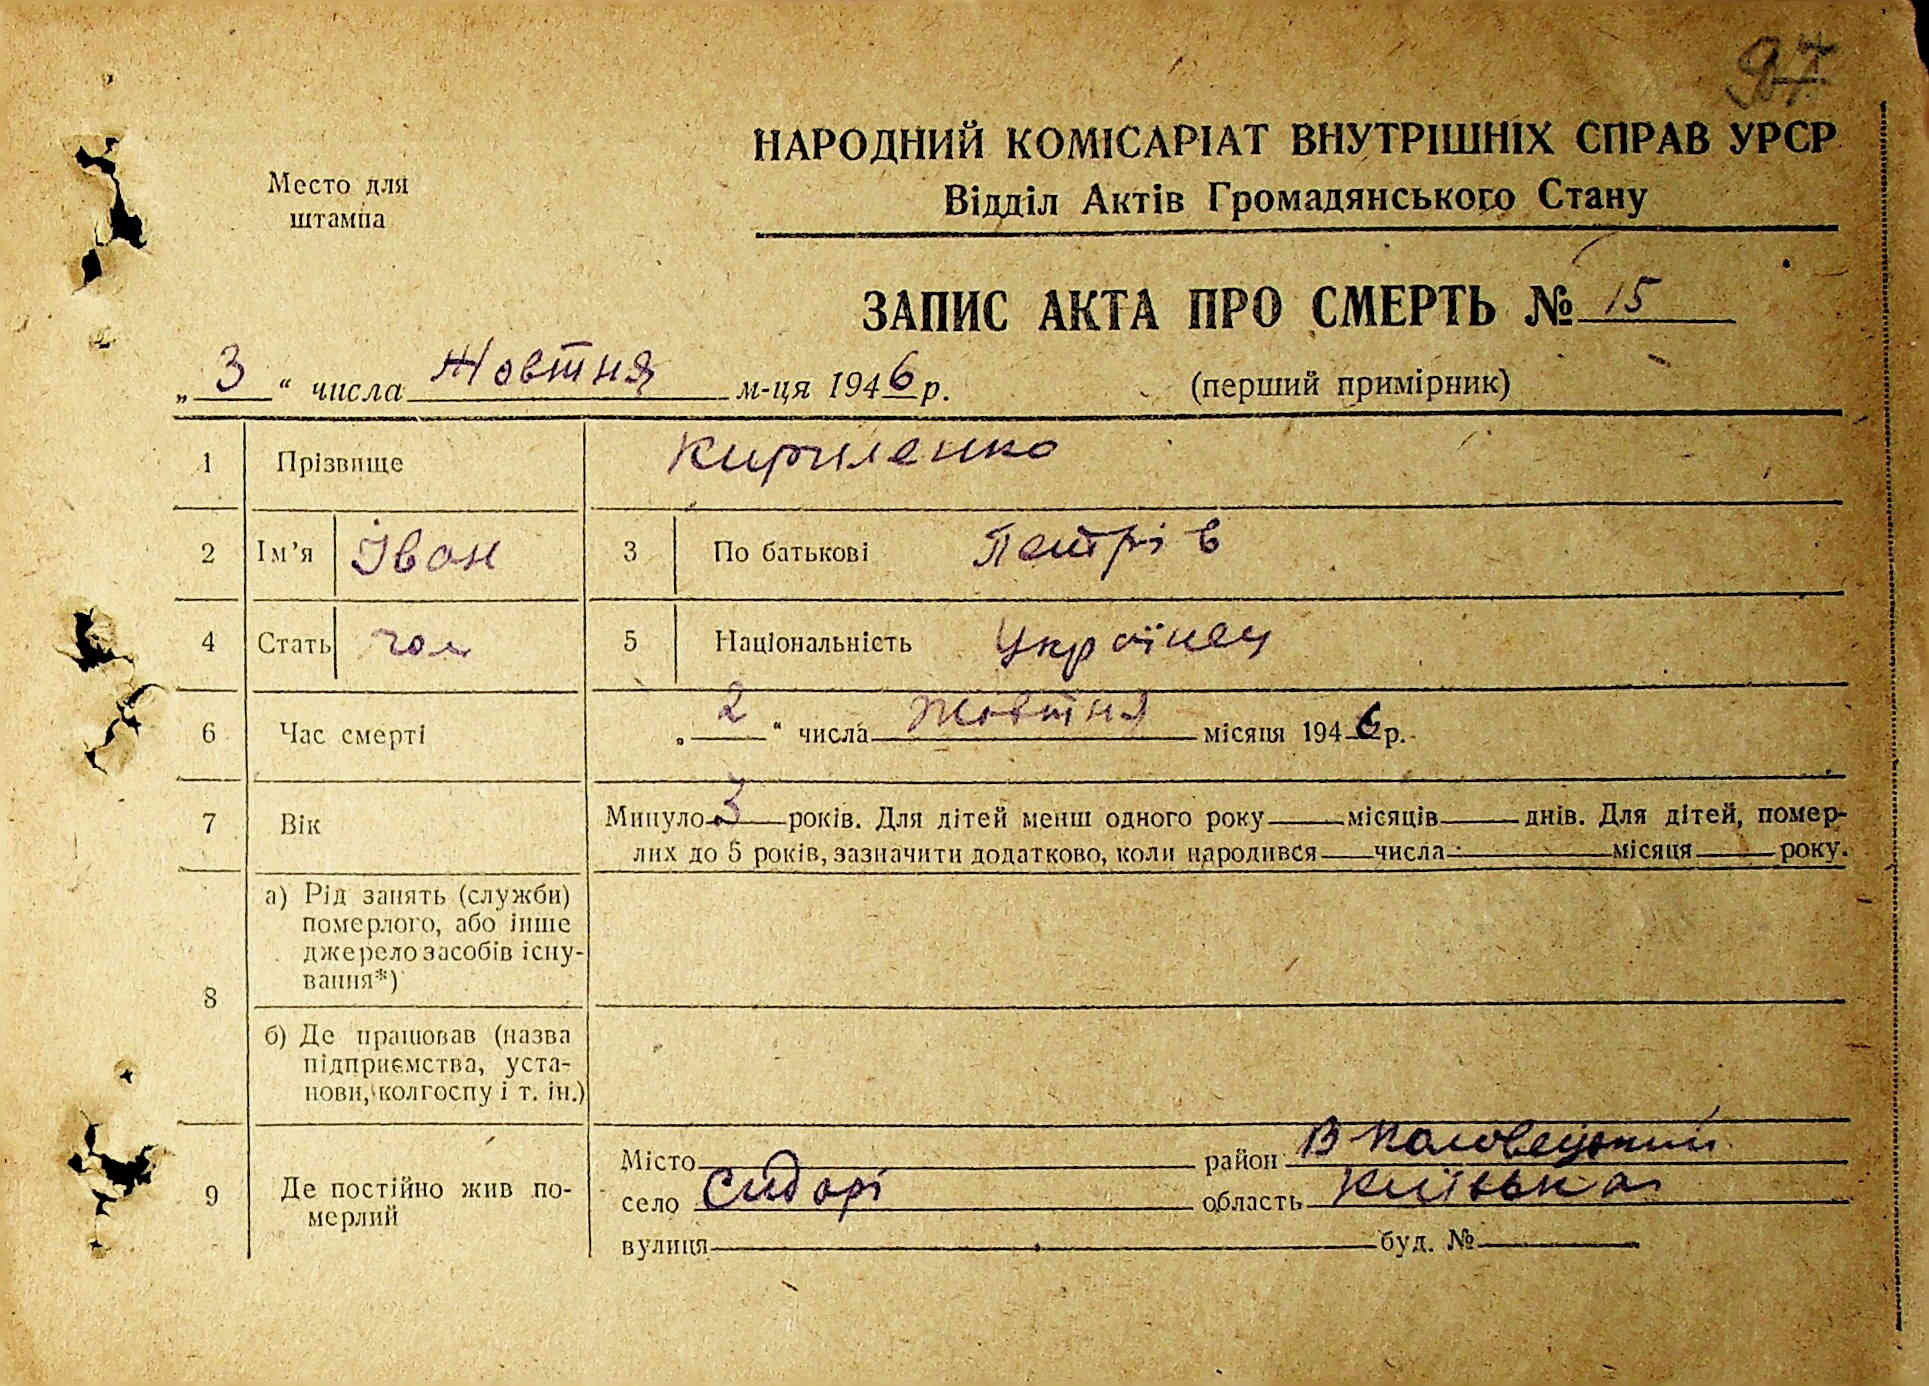 97
НАРОДНИЙ КОМІСАРІАТ ВНУТРІШНІХ СПРАВ УРСР
Место для
штампа
Відділ Актів Громадянського Стану
ЗАПИС АКТА ПРО СМЕРТЬ № 15
„ 3 “ числа Жовтня м-ця 1946 р.
(перший примірник)
1 Прізвище Кириленко
2 Ім’я Іван 3 По батькові Петрів
4 Стать чол 5 Національність Українец
6 Час смерті „ 2 “ числа Жовтня місяця 1946 р.
7 Вік Минуло 3 років. Для дітей менш одного року місяців днів. Для дітей, помер-
лих до 5 років, зазначити додатково, коли народився числа місяця року.
8 а) Рід занять (служби)
померлого, або інше
джерело засобів існу-
вання*)
б) Де працював (назва
підприємства, уста-
нови, колгоспу і т. ін.)
9 Де постійно жив по-
мерлий
Місто район В Половецький
село Сидорі область Київська
вулиця буд. №